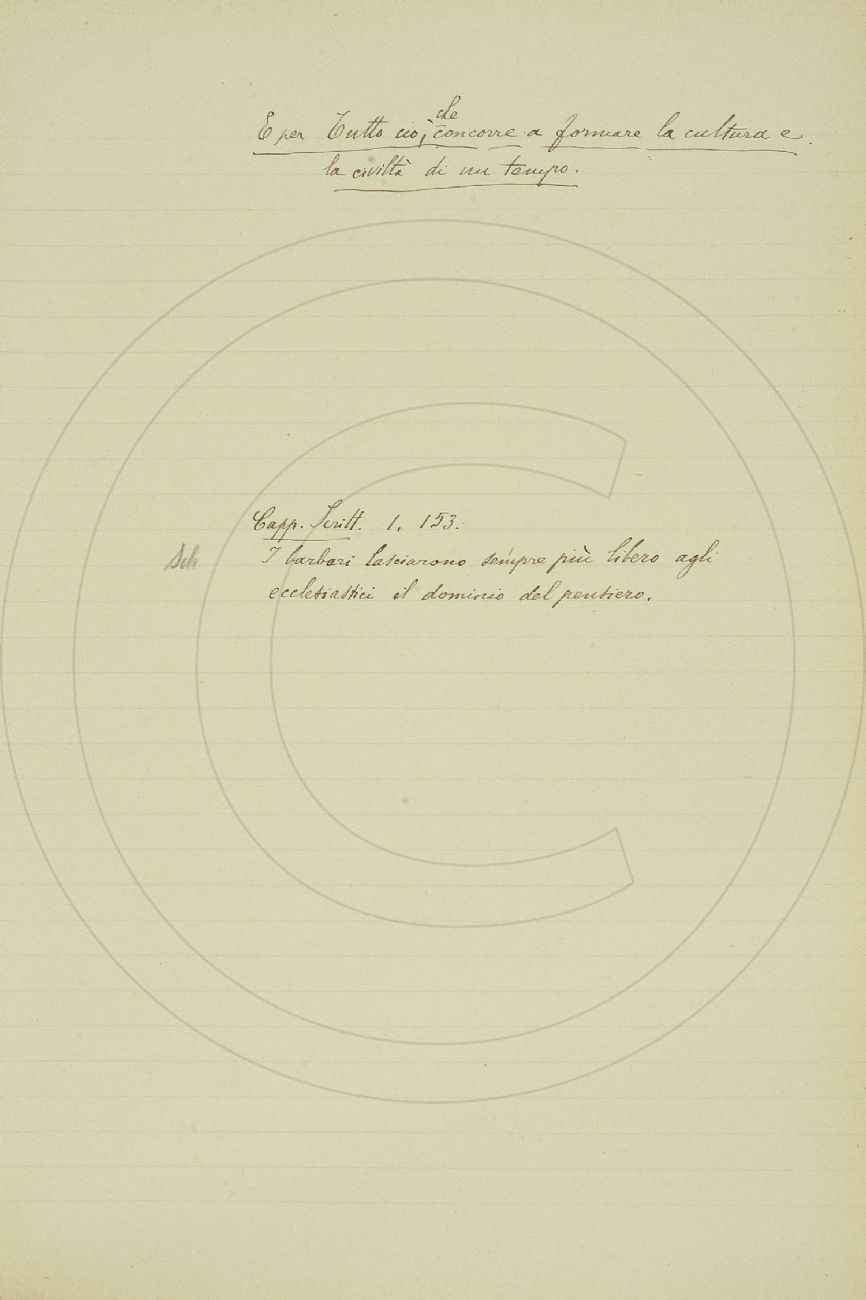 E per Tutto ciò, che concorre a formare la cultura e
la civiltà di un tempo.
Capp. Scritt. 1, 153.
Sch. I barbari lasciarono sempre più libero agli
ecclesiastici il dominio del pensiero.